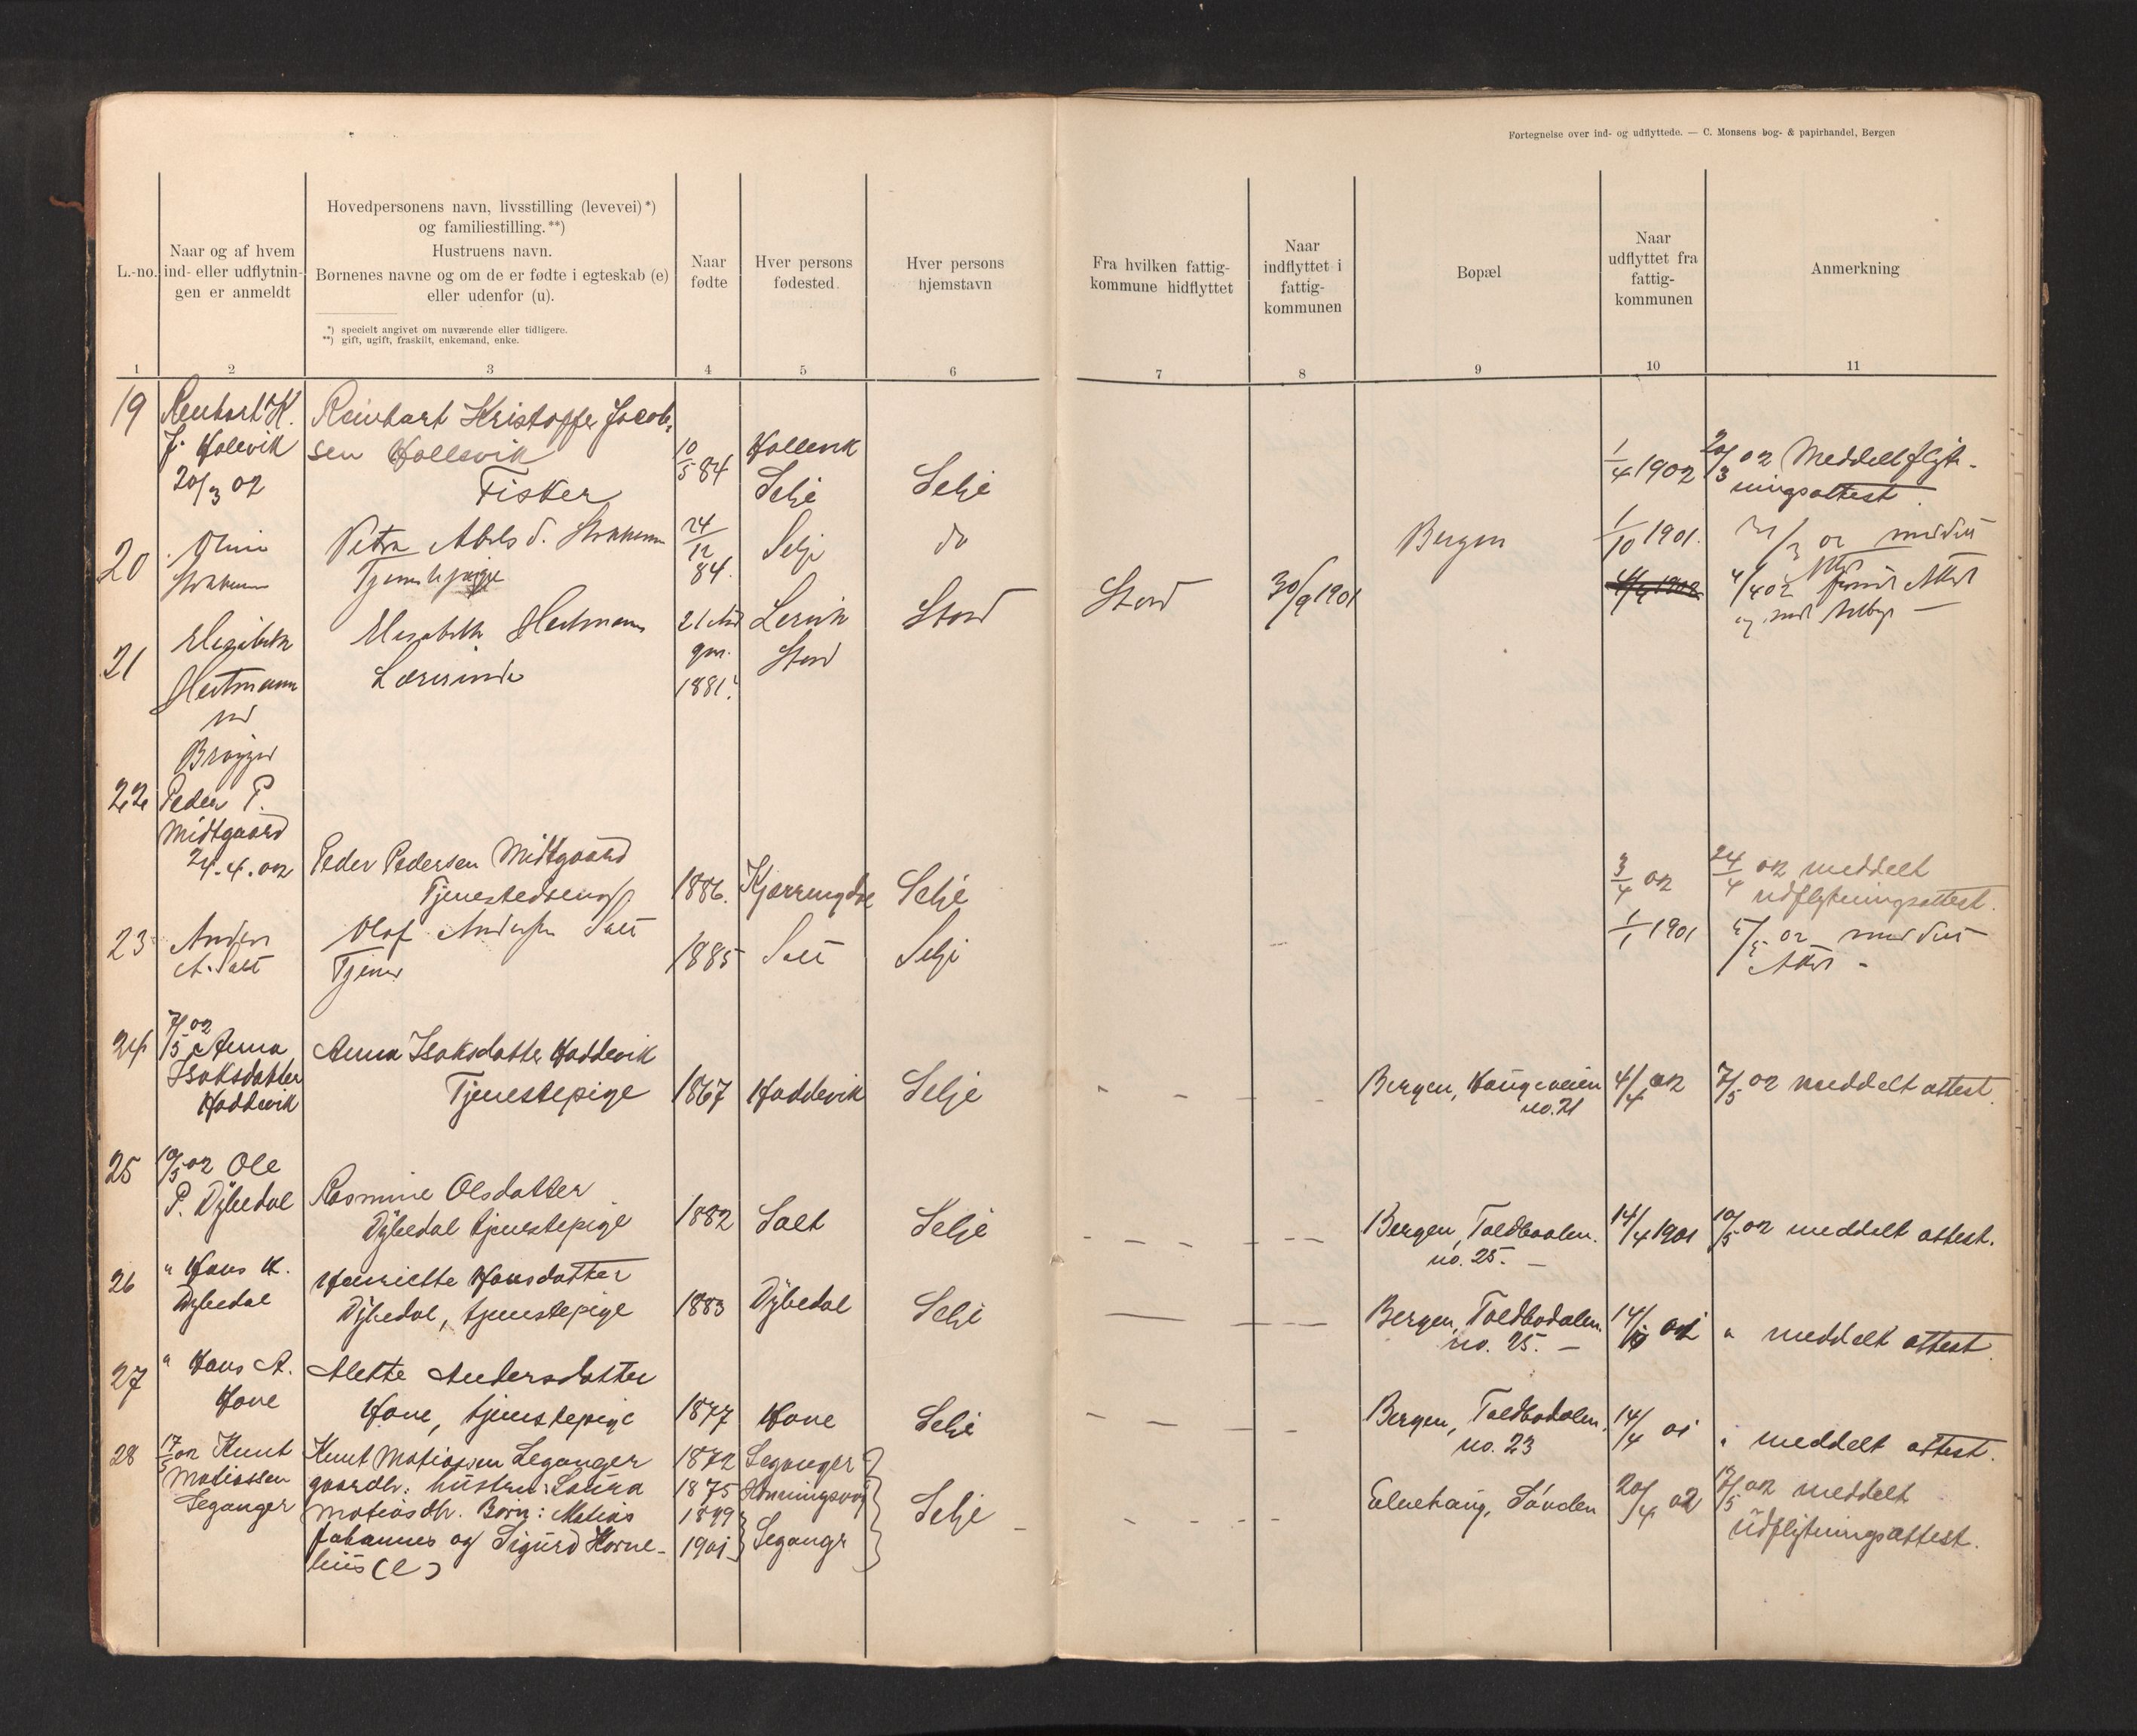 Fortegnelse over ind- og udflyttede. — C. Monsens bog- & papirhandel, Bergen
L.-no.
Naar og af hvem
ind- eller udflytnin-
gen er anmeldt
Hovedpersonens navn, livsstilling (levevei) *)
og familiestilling. **)
Hustruens navn.
Børnenes navne og om de er fødte i egteskab (e)
eller udenfor (u).
*) specielt angivet om nuværende eller tidligere.
**) gift, ugift, fraskilt, enkemand, enke.
Naar
fødte
Hver persons
fødested
Hver persons
hjemstavn
Fra hvilken fattig-
kommune hidflyttet
Naar
indflyttet i
fattig-
kommunen
Bopæl
Naar
udflyttet fra
fattig-
kommunen
Anmerkning
1 2 3 4 5 6 7 8 9 10 11
19
J. Hollevik
20/3 02
Reinhart Kristoffer Jacob-
sen Hollevik
Fisker
10/5 84
Hollevik
Selje
Selje
1/4 1902
20/3 02 Meddelt flyt-
ningsattest
20
Petra Abels d.
Tjenestepige
24/12
84.
Selje
do
Bergen
1/10 1901.
21
Elisabeth
Elisabeth
Lærerinde
1881
Stord
Stord
Stord
30/9 1901
22
Peder P.
Midtgaard
24.4.02
Peder Pedersen Midtgaard
Tjenestedreng
1886.
Selje
3/4 02
24/4 02 meddelt
udflytningsattest.
23
Anders
A. Salt
Olaf Andersen Salt
Tjener
1885
Salt
Selje
1/1 1901
24
7/5 02
Anna
Isaksdatter
Hoddevik
Anna Isaksdatter Hoddevik
Tjenestepige
1867
Hoddevik
Selje
Bergen, Haugeveien
no. 21
4/4 02
7/5 02 meddelt attest.
25
10/5 02 Ole
P. Dybedal
Rasmine Olsdatter
Dybedal tjenestepige
1882
Salt
Selje
Bergen, Toldbodalm.
no. 25. —
14/4 1901
10/5 02 meddelt attest.
26
" Hans K.
Dybedal
Henriette Hansdatter
Dybedal, tjenestepige
1883
Dybedal
Selje
Bergen, Toldbodalm.
no. 25. —
" meddelt attest.
27
" Hans A.
Hove
Alette Andersdatter
Hove, tjenestepige
1877
Hove
Selje
Bergen, Toldbodalm.
no. 23
14/4 01
" meddelt attest.
28
17/5 02 Knut
Matiassen
Leganger
Knut Matiassen Leganger
gaardbr: hustru: Laura
Matiasdtr. Børn: Matias
Johannes og Sigurd Korne-
lius (e)
1872
1875
1899
1901
Leganger
Honningsvog
Leganger
Selje
20/4 02
17/5 02 meddelt
udflytningsattest.